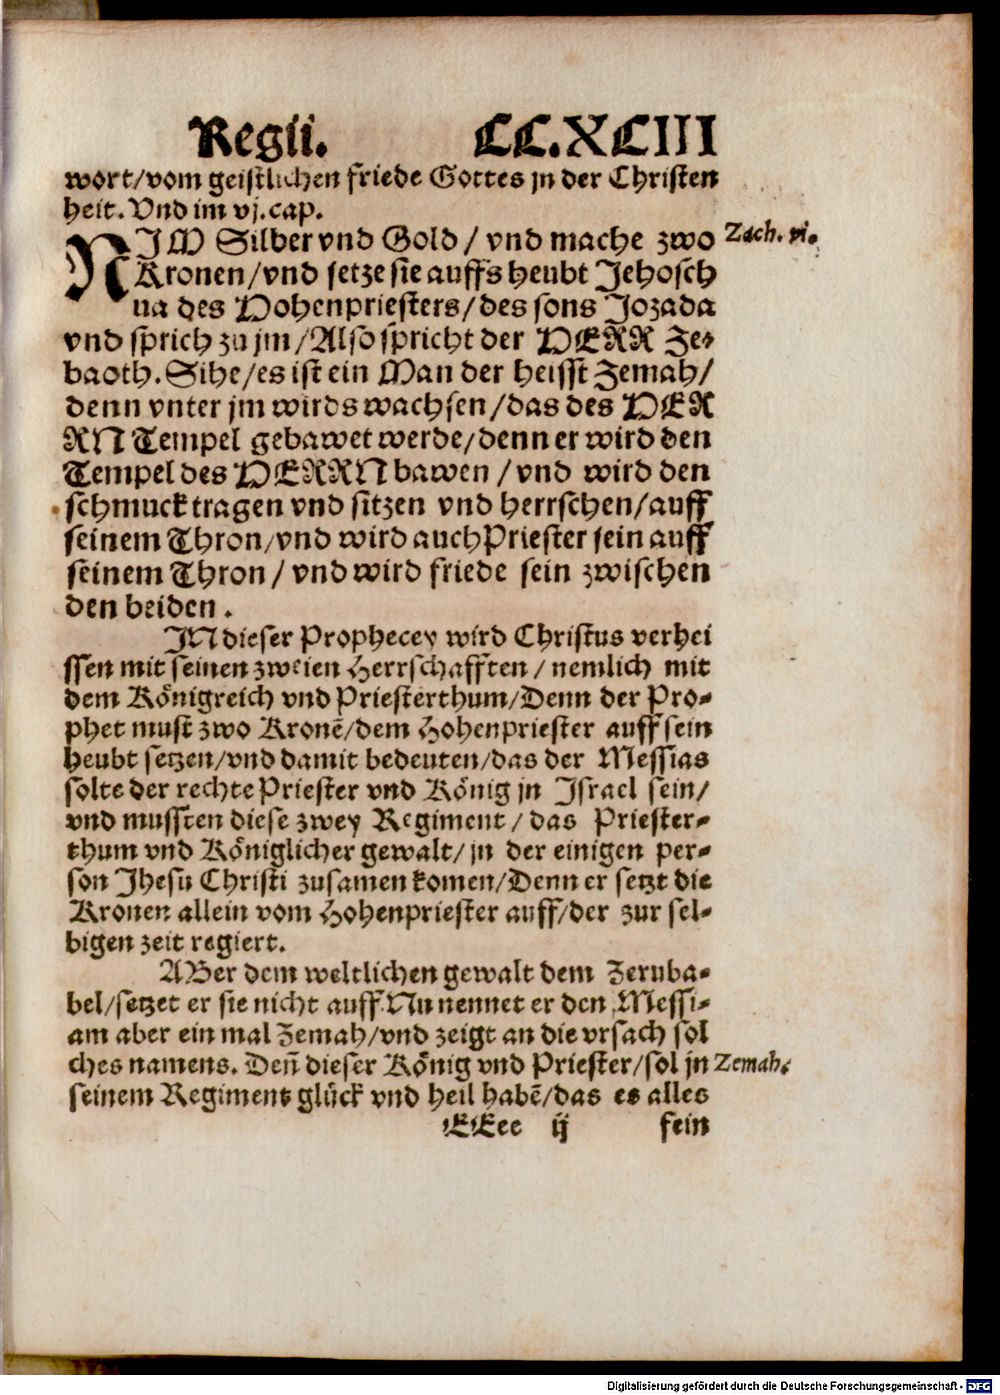 Regii. CC.XCIII
wort/vom geistlichen friede Gottes jn der Christen
heit. Vnd im vj. cap.
NJM Silber vnd Gold / vnd mache zwo
Zach. vi.
Kronen/vnd setze sie auffs heubt Jehosch
ua des Hohenpriesters/des sons Jozada
vnd sprich zu jm/Also spricht der HERR Ze-
baoth. Sihe/es ist ein Man der heisst Zemah/
denn vnter jm wirds wachsen/das des HER
RN Tempel gebawet werde/denn er wird den
Tempel des HERRN bawen / vnd wird den
schmuck tragen vnd sitzen vnd herrschen/auff
seinem Thron/vnd wird auch Priester sein auff
seinem Thron / vnd wird friede sein zwischen
den beiden.
JN dieser Prophecey wird Christus verhei
ssen mit seinen zweien Herrschafften / nemlich mit
dem Königreich vnd Priesterthum/Denn der Pro-
phet must zwo Kronē/dem Hohenpriester auff sein
heubt setzen/vnd damit bedeuten/das der Messias
solte der rechte Priester vnd König jn Israel sein/
vnd mussten diese zwey Regiment / das Priester-
thum vnd Königlicher gewalt/jn der einigen per-
son Jhesu Christi zusamen komen/Denn er setzt die
Kronen allein vom Hohenpriester auff/der zur sel-
bigen zeit regiert.
ABer dem weltlichen gewalt dem Zeruba-
bel/setzet er sie nicht auff. Nu nennet er den Messi-
am aber ein mal Zemah/vnd zeigt an die vrsach sol
ches namens. Deñ dieser König vnd Priester/sol jn
Zemah.
seinem Regiment glück vnd heil habē/das es alles
EEee ij fein
Digitalisierung gefördert durch die Deutsche Forschungsgemeinschaft - DFG